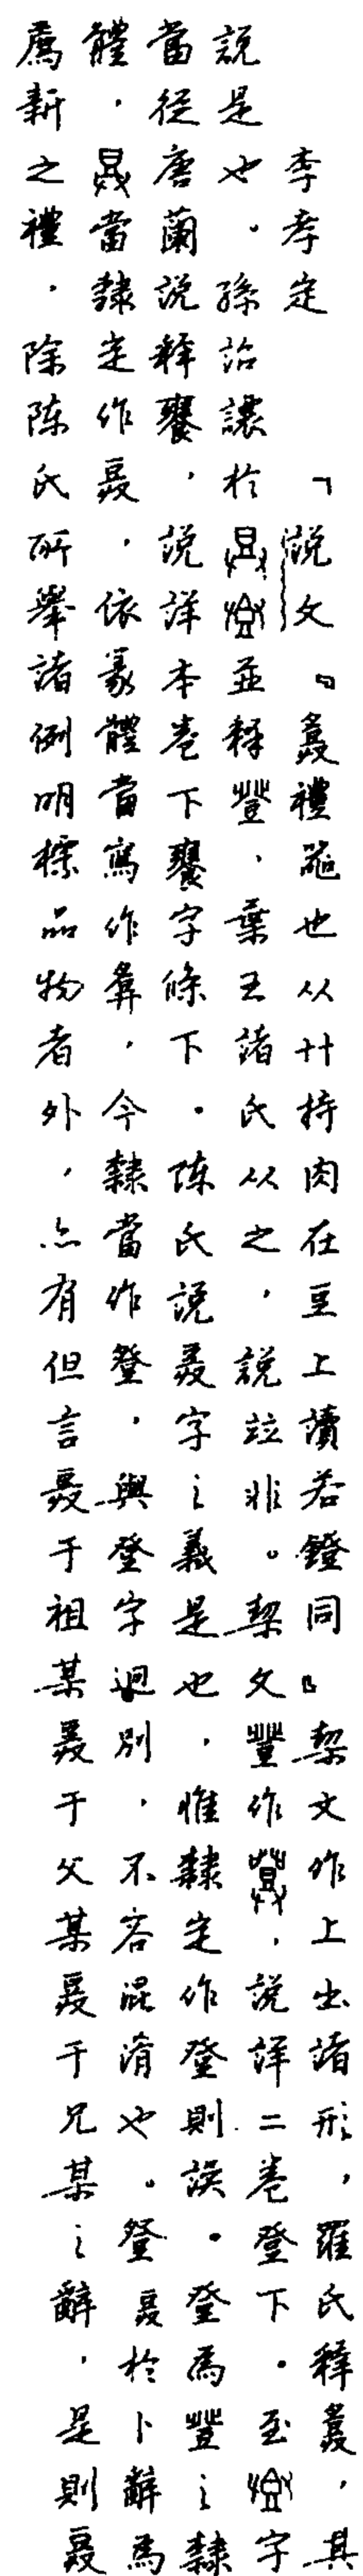 李孝定 「說文『禮器也从廾持肉在豆上讀若鐙同』契文作上出諸形，羅氏釋，其
說是也。孫詒讓於並釋登，葉王諸氏从之，說竝非。契文登作，說詳二卷登下。至字
當從唐蘭說釋，說詳本卷下字條下。陳氏說字之義是也，惟隸定作登則誤。登為登之隸
體，當隸定作，依篆體當寫作，今隸當作豋，與登字迥別，不容混淆也。豋於卜辭為
薦新之禮，除陳氏所舉諸例明標品物者外，亦有但言于祖某于父某于兄某之辭，是則